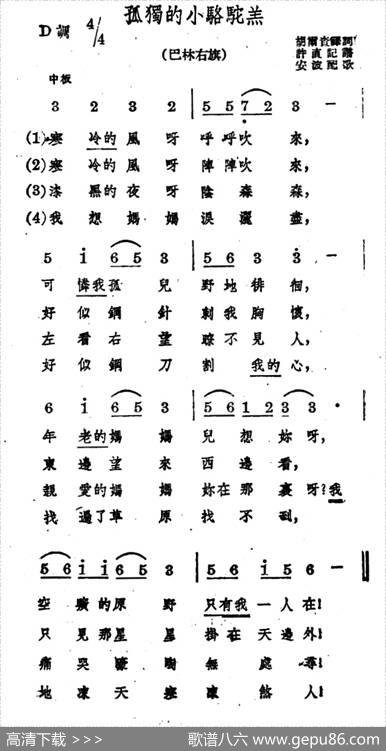 孤獨的小駱駝羔
D調 4/4
(巴林右旗)
胡爾查譯詞
許直記譜
安波配歌
中板
3 2 3 2 | 5 5 7 2 3 —
(1)寒 冷的 風 呀 呼 呼吹 來,
(2)寒 冷的 風 呀 陣 陣吹 來,
(3)漆 黑的 夜 呀 陰 森 森,
(4)我 想 媽 媽 淚 灑 盡,
5 i 6 5 3 | 5 6 3 3 —
可 憐我孤 兒 野 地 徘 徊,
好 似 鋼 針 刺 我 胸 懷,
左 看 右 望 瞭 不 見 人,
好 似 鋼 刀 割 我的 心,
6 i 6 5 3 | 5 6 1 2 3 3 ·
年 老的 媽 媽 兒 想 妳 呀,
東 邊 望 來 西 邊 看,
親 愛的 媽 媽 妳 在 那 裏 呀?我
找 遍了 草 原 找 不 到,
5 6 i i 6 5 3 | 5 5 6 i 5 6 —
空 曠 的 原 野 只有我 一 人 在!
只 見 那 星 星 掛 在 天 邊 外!
痛 哭 嚎 啕 無 處 尋!
地 凍 天 寒 凍 煞 人!
高清下载 >>>
歌谱八六 www.gepu86.com